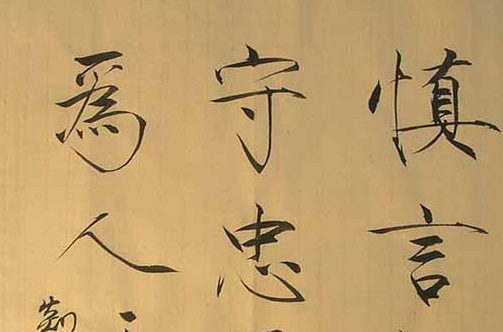 慎言
守忠
為人